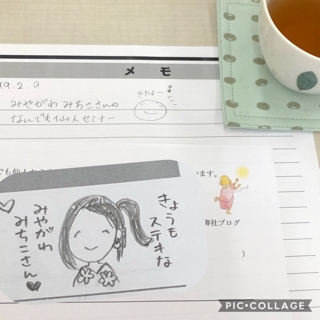 メモ
19.2.9
みやがわ みちこさんの
なんでも仙人セミナー
きたよー
います。
弊社ブログ
)
きょうも
ステキな
みやがわ
みちこさん
PIC•COLLAGE